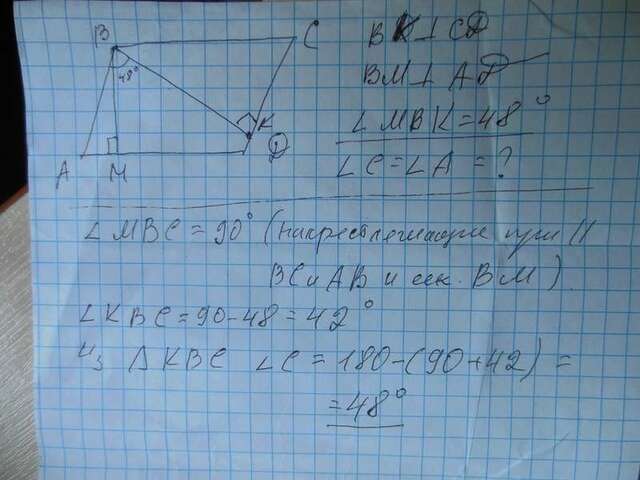 B
C
48°
K
A
M
D
BK ⊥ CD
BM ⊥ AD
∠MBK = 48°
∠C = ∠A = ?
∠MBC = 90° (накрестлежащие при ||
BC и AB и сек. BM).
∠KBC = 90 - 48 = 42°
Из △KBC ∠C = 180 - (90 + 42) =
= 48°